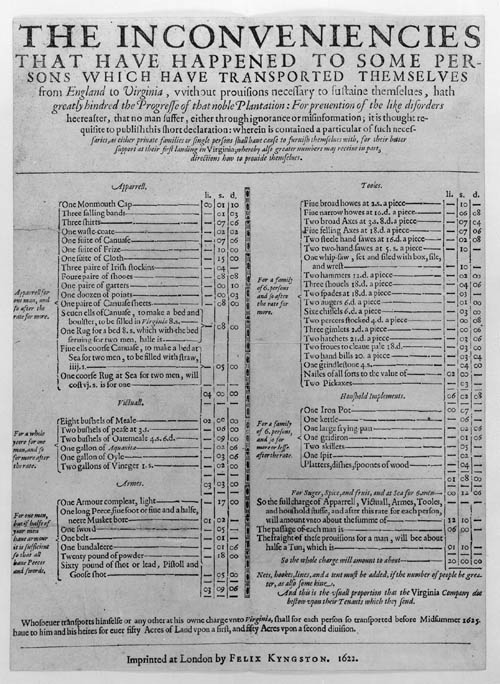 THE INCONVENIENCIES
THAT HAVE HAPPENED TO SOME PER-
SONS WHICH HAVE TRANSPORTED THEMSELVES
from England to Virginia, vvithout prouisions necessary to sustaine themselues, hath
greatly hindred the Progresse of that noble Plantation: For preuention of the like disorders
heereafter, that no man suffer, either through ignorance or misinformation; it is thought re-
quisite to publish this short declaration: wherein is contained a particular of such neces-
saries, as either priuate families or single persons shall haue cause to furnish themselues with, for their better
support at their first landing in Virginia; whereby also greater numbers may receiue in part,
directions how to prouide themselues.
Apparrell.
li. s. d.
Apparrell for
one man, and
so after the
rate for more.
One Monmouth Cap 00 01 10
Three falling bands — 01 03
Three shirts — 07 06
One waste-coate — 02 02
One suite of Canuase — 07 06
One suite of Frize — 10 00
One suite of Cloth — 15 00
Three paire of Irish stockins — 04 —
Foure paire of shooes — 08 08
One paire of garters — 00 10
One doozen of points — 00 03
One paire of Canuase sheets — 08 00
Seuen ells of Canuase, to make a bed and
boulster, to be filled in Virginia 8.s.
One Rug for a bed 8.s. which with the bed
seruing for two men, halfe is — 08 00
Fiue ells coorse Canuase, to make a bed at
Sea for two men, to be filled with straw,
iiij.s.
One coorse Rug at Sea for two men, will
cost vj.s. is for one — 05 00
04 00 00
Victuall.
For a whole
yeere for one
man, and so
for more after
the rate.
Eight bushels of Meale 02 00 00
Two bushels of pease at 3.s. — 06 00
Two bushels of Oatemeale 4.s. 6.d. — 09 00
One gallon of Aquauitae — 02 06
One gallon of Oyle — 03 06
Two gallons of Vineger 1.s. — 02 00
03 03 00
Armes.
For one man,
but if halfe of
your men
haue armour
it is sufficient
so that all
haue Peeces
and swords.
One Armour compleat, light — 17 00
One long Peece, fiue foot or fiue and a halfe,
neere Musket bore 01 02 —
One sword — 05 —
One belt — 01 —
One bandaleere — 01 06
Twenty pound of powder — 18 00
Sixty pound of shot or lead, Pistoll and
Goose shot — 05 00
03 09 06
Tooles.
li. s. d.
For a family
of 6. persons
and so after
the rate for
more.
Fiue broad howes at 2.s. a piece — 10 —
Fiue narrow howes at 16.d. a piece — 06 08
Two broad Axes at 3.s. 8.d. a piece — 07 04
Fiue felling Axes at 18.d. a piece — 07 06
Two steele hand sawes at 16.d. a piece — 02 08
Two two-hand sawes at 5. s. a piece — 10 —
One whip-saw, set and filed with box, file,
and wrest — 10 —
Two hammers 12.d. a piece — 02 00
Three shouels 18.d. a piece — 04 06
Two spades at 18.d. a piece — 03 —
Two augers 6.d. a piece — 01 00
Sixe chissels 6.d. a piece — 03 00
Two percers stocked 4.d. a piece — 00 08
Three gimlets 2.d. a piece — 00 06
Two hatchets 21.d. a piece — 03 06
Two froues to cleaue pale 18.d. — 03 00
Two hand bills 20. a piece — 03 04
One grindlestone 4.s. — 04 00
Nailes of all sorts to the value of 02 00 —
Two Pickaxes — 03 —
Houshold Implements. 06 02 08
For a family
of 6. persons,
and so for
more or lesse
after the rate.
One Iron Pot 00 07 —
One kettle — 06 —
One large frying pan — 02 06
One gridiron — 01 06
Two skillets — 05 —
One spit — 02 —
Platters, dishes, spoones of wood — 04 —
01 08 00
For Suger, Spice, and fruit, and at Sea for 6. men 00 12 06
So the full charge of Apparrell, Victuall, Armes, Tooles,
and houshold stuffe, and after this rate for each person,
will amount vnto about the summe of 12 10 —
The passage of each man is 06 00 —
The fraight of these prouisions for a man, will bee about
halfe a Tun, which is 01 10 —
So the whole charge will amount to about 20 00 00
Nets, hookes, lines, and a tent must be added, if the number of people be grea-
ter, as also some kine.
And this is the vsuall proportion that the Virginia Company doe
bestow vpon their Tenants which they send.
Whosoeuer transports himselfe or any other at his owne charge vnto Virginia, shall for each person so transported before Midsummer 1625.
haue to him and his heires for euer fifty Acres of Land vpon a first, and fifty Acres vpon a second diuision.
Imprinted at London by FELIX KYNGSTON. 1622.